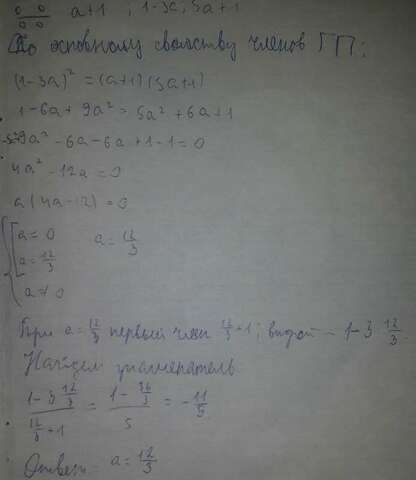 a+1 ; 1-3a; 5a+1
По основному свойству членов ГП:
(1-3a)² = (a+1)(5a+1)
1-6a+9a² = 5a²+6a+1
9a²-6a-6a+1-1=0
4a²-12a=0
a(4a-12)=0
a=0 a=12/3
a=12/3
a≠0
При a=12/3 первый член 12/3+1; второй - 1-3·12/3
Найдем знаменатель
(1-3 12/3)/(12/3+1) = (1-36/3)/5 = -11/5
Ответ: a=12/3